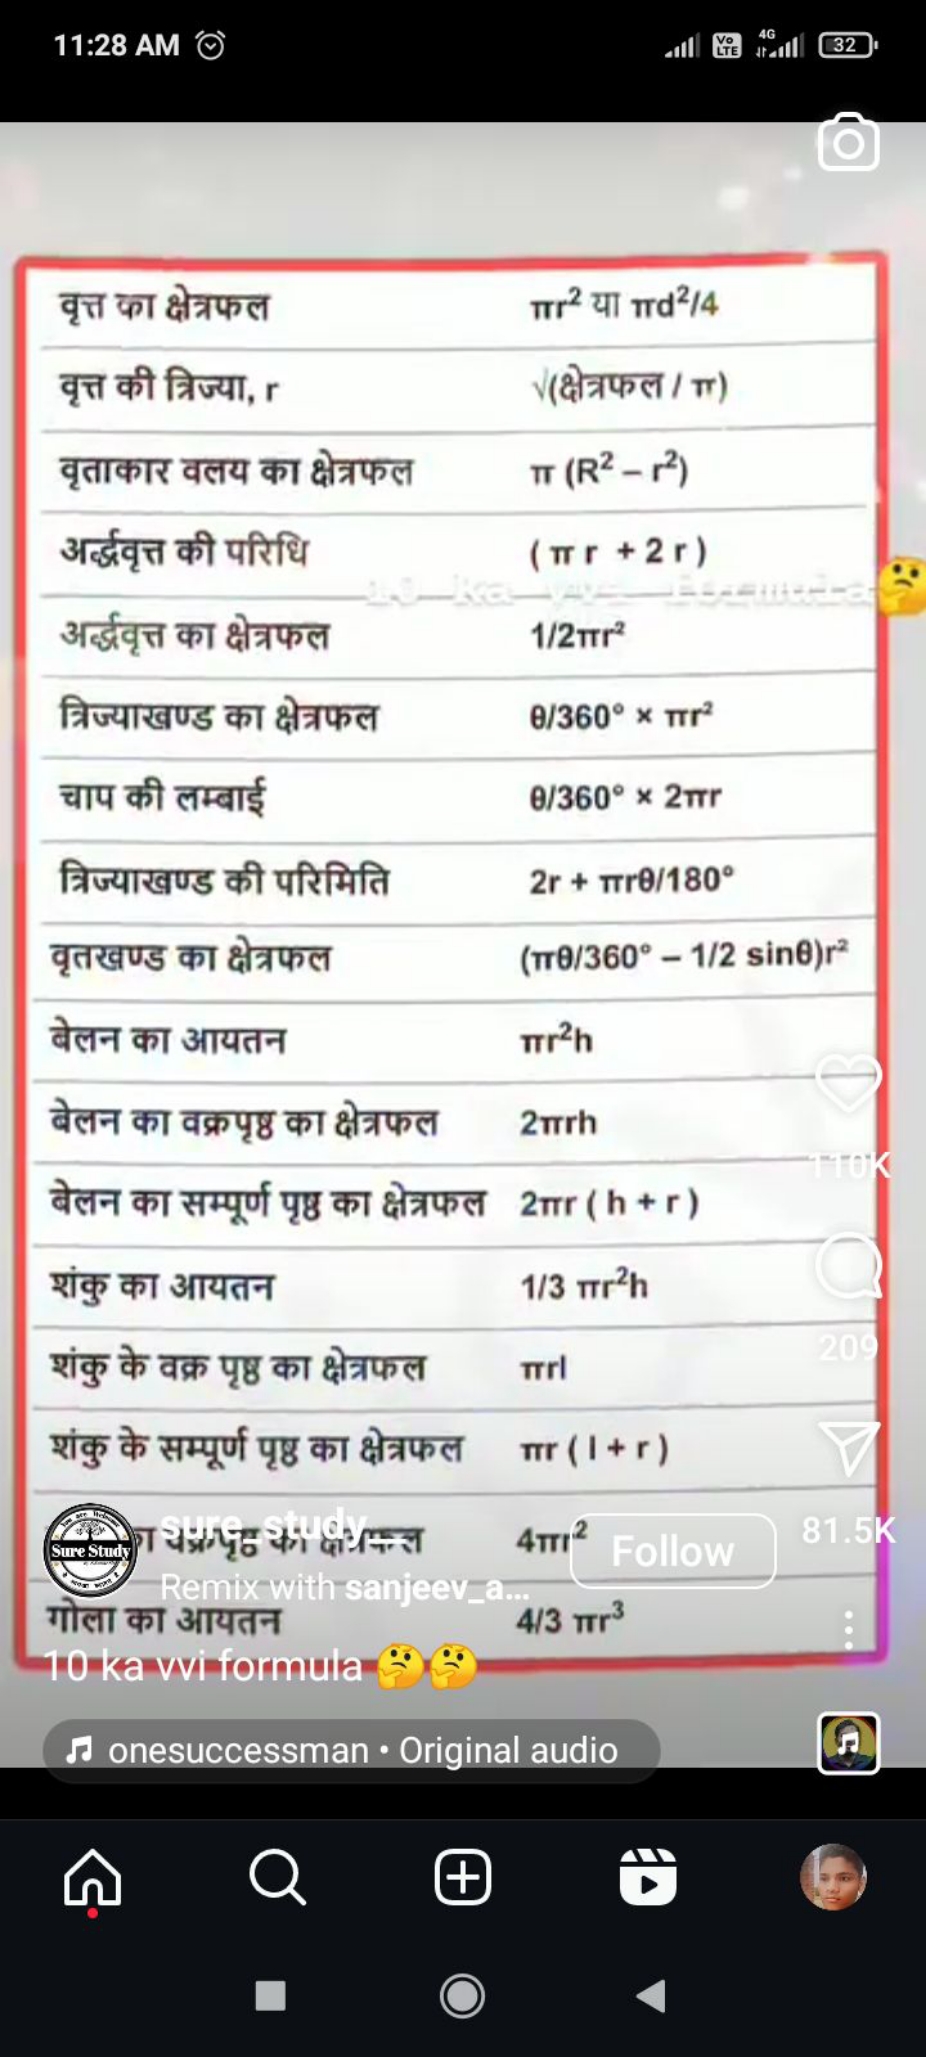 11:28 AM
Vo LTE 4G 32
वृत्त का क्षेत्रफल πr² या πd²/4
वृत्त की त्रिज्या, r √(क्षेत्रफल / π)
वृताकार वलय का क्षेत्रफल π (R² – r²)
अर्द्धवृत्त की परिधि ( π r + 2 r )
10 ka vvi formula🤔
अर्द्धवृत्त का क्षेत्रफल 1/2πr²
त्रिज्याखण्ड का क्षेत्रफल θ/360° × πr²
चाप की लम्बाई θ/360° × 2πr
त्रिज्याखण्ड की परिमिति 2r + πrθ/180°
वृतखण्ड का क्षेत्रफल (πθ/360° – 1/2 sinθ)r²
बेलन का आयतन πr²h
बेलन का वक्रपृष्ठ का क्षेत्रफल 2πrh
110K
बेलन का सम्पूर्ण पृष्ठ का क्षेत्रफल 2πr ( h + r )
शंकु का आयतन 1/3 πr²h
209
शंकु के वक्र पृष्ठ का क्षेत्रफल πrl
शंकु के सम्पूर्ण पृष्ठ का क्षेत्रफल πr ( l + r )
का वक्रपृष्ठ का क्षेत्रफल 4πr²
81.5K
Sure Study
sure_study__
Follow
Remix with sanjeev_a...
गोला का आयतन 4/3 πr³
10 ka vvi formula 🤔🤔
onesuccessman • Original audio